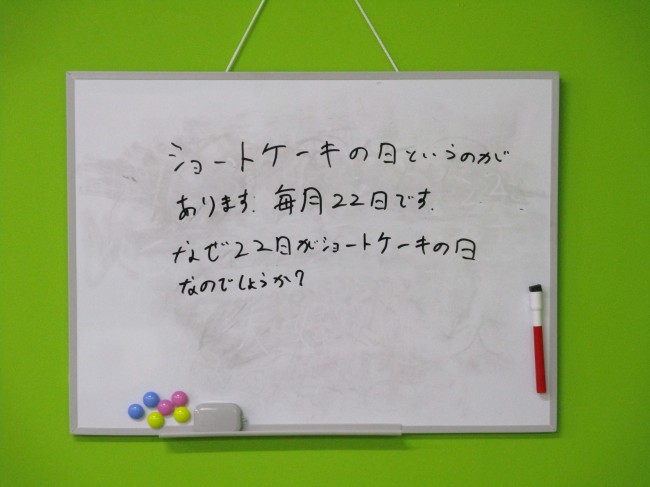 ショートケーキの日というのが
あります. 毎月22日です.
なぜ22日がショートケーキの日
なのでしょうか?